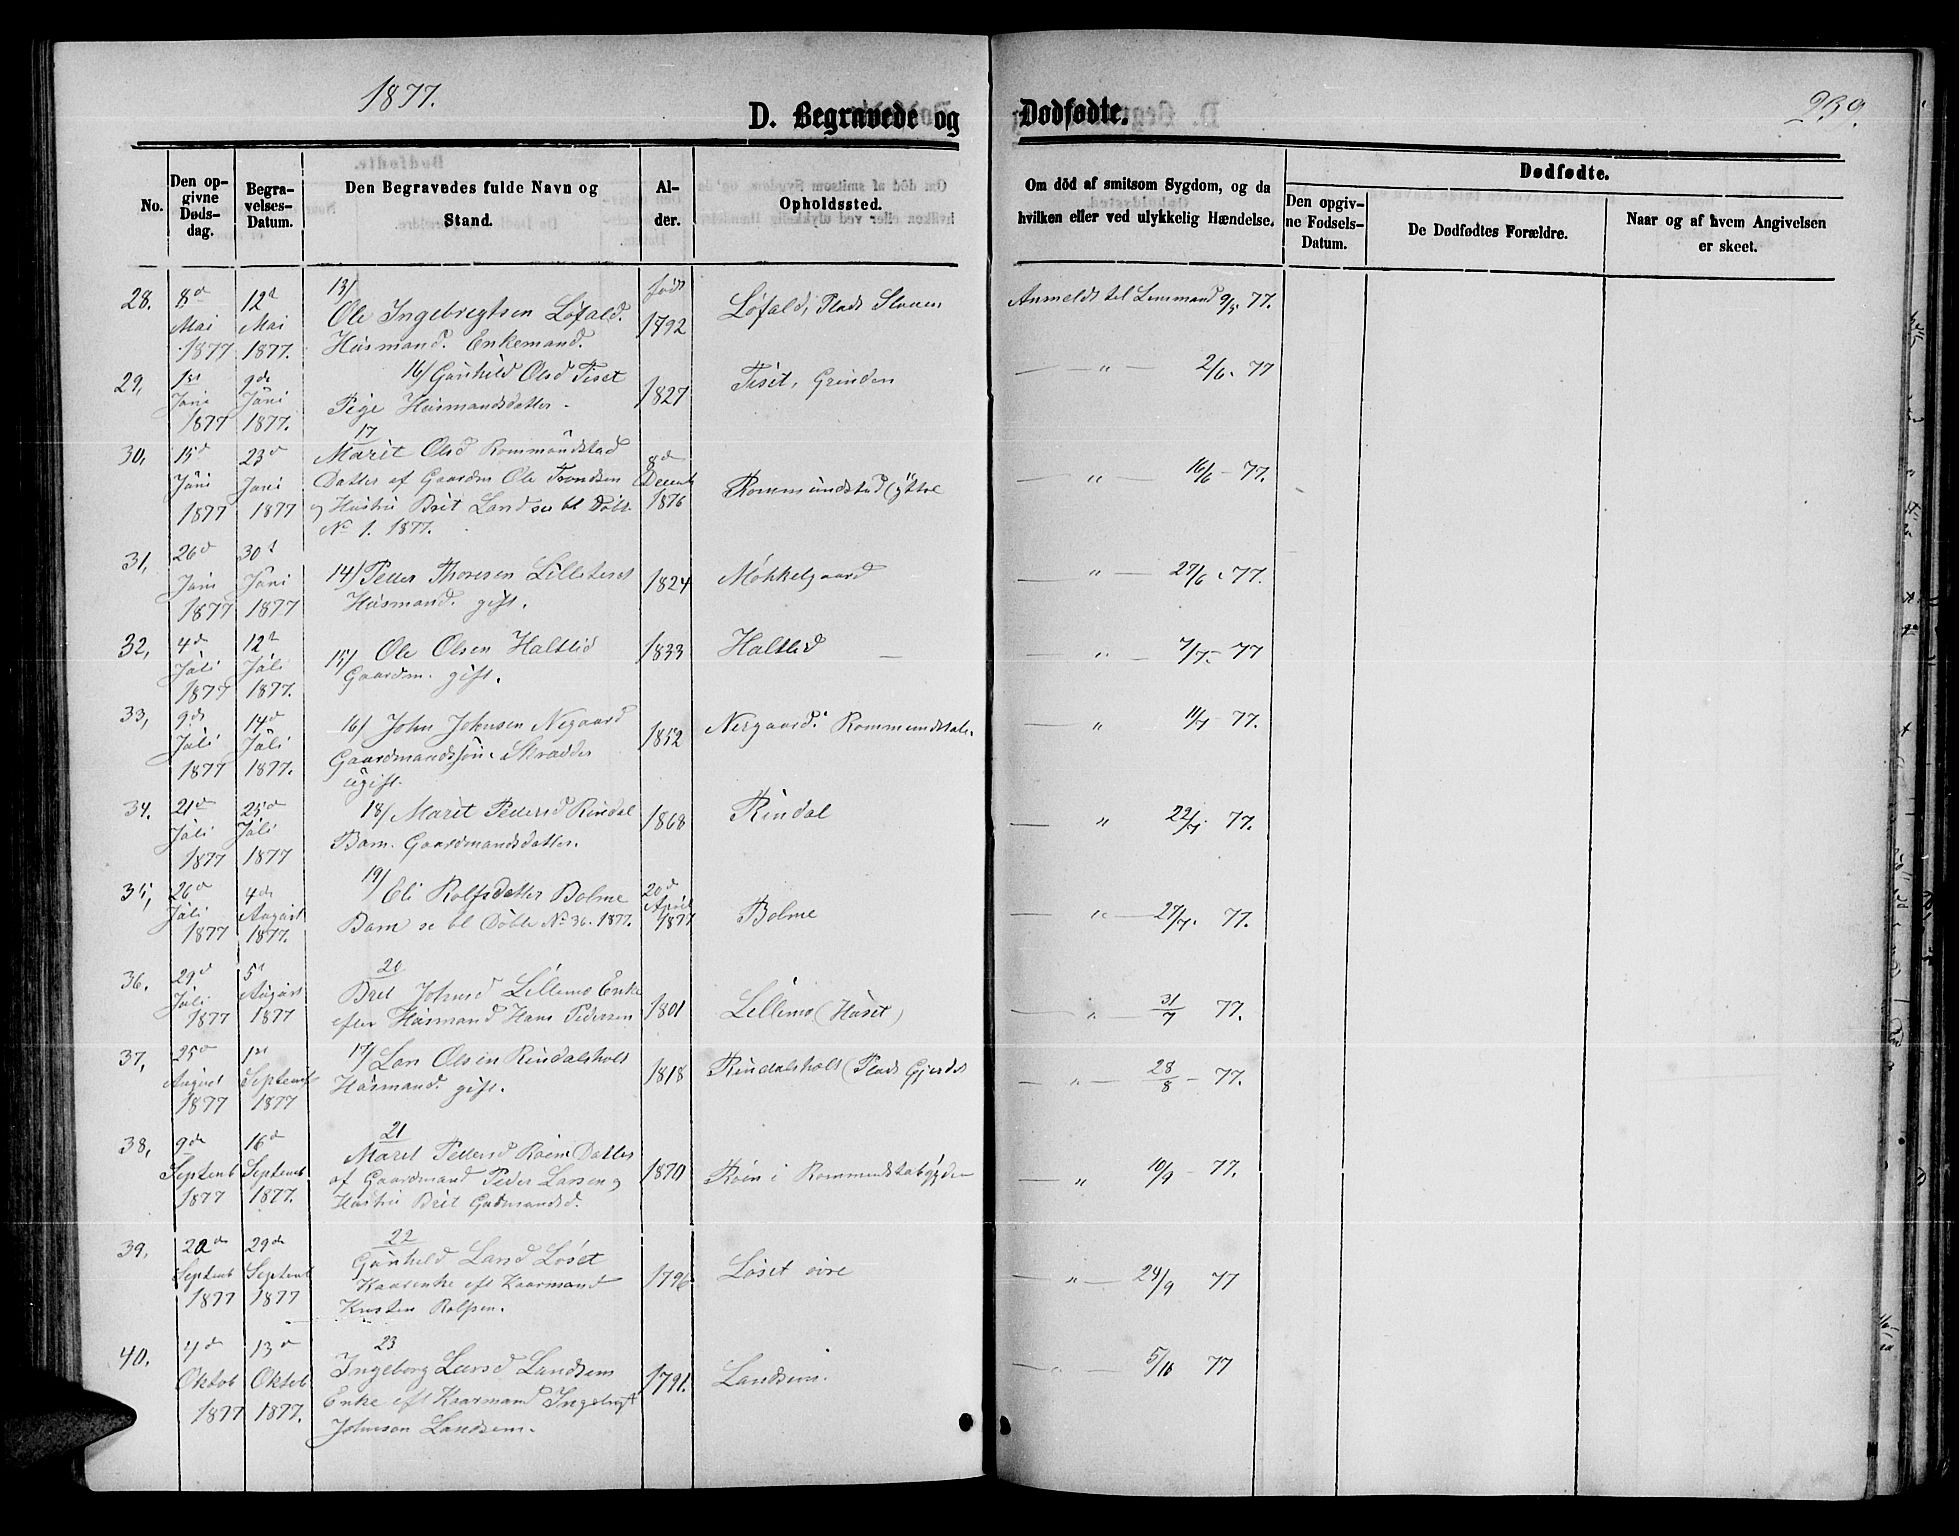 1877.
239.
D. Begravede og Dødfødte.
No.
Den opgivne Dødsdag.
Begravelses-Datum.
Den Begravedes fulde Navn og Stand.
Alder.
Opholdssted.
Om död af smitsom Sygdom, og da hvilken eller ved ulykkelig Hændelse.
Dødfødte.
Den opgivne Fødsels-Datum.
De Dødfødtes Forældre.
Naar og af hvem Angivelsen er skeet.
28. 8de Mai 1877 12te Mai 1877.
13/ Ole Ingebregtsen Løfald.
Husmand. Enkemand.
født 1792
Løfald, Plads
Anmeldt til Lensmand 9/5 77.
29, 1ste Juni 1877 9de Juni 1877.
16/ Gunhild Olsd Tiset
Pige Husmandsdatter.
1827
Tiset, Grinden
— " — 2/6. 77
30, 15de Juni 1877 23de Juni 1877
17
Marit Olsd Rommundstad
Datter af Gaardm Ole Trondsen
og Hustru Brit Landsem bl Døbt
No 1. 1877.
8de Decemb 1876
Rommundstad yttre
— " — 16/6 - 77.
31, 26de Juni 1877 30te Juni 1877
14/ Peller Thoresen Lilleteret
Husmand. gift.
1824
Møkkelgaard
— " — 27/6 . 77.
32, 4de Juli 1877 12te Juli 1877.
15/ Ole Olsen Haltlid
Gaardm. gift.
1833
Haltlid —
— " — 7/7 - 77
33, 9de Juli 1877 14de Juli 1877.
16/ John Johnsen Negaard
Gaardmandssøn. Skrædder
ugift.
1852
Nergaard.
— " 11/7 - 77.
34. 21de Juli 1877 25de Juli 1877
18/ Marit Pedersd Rindal
Barn. Gaardmandsdatter.
1868
Rindal
— " 22/7 . 77.
35, 26de Juli 1877 4de August 1877.
19/ Eli Rolfsdatter Bolme
Barn se bl Døbte No 36. 1877.
20de April 1877
Bolme
— " — 27/7. 77.
36. 29de Juli 1877 5te August 1877
20
Brit Johnsd Lillemo Enke
efter Husmand Hans Pedersen
1801
Lillemo (Huset)
— " — 31/7 77.
37, 25de August 1877 1ste Septemb 1877
17/ Lars Olsen Rindalsholt
Husmand. gift.
1818
Rindalsholt (Plads Gjerdet
— " — 28/8 - 77.
38, 9de Septemb 1877 16de Septemb 1877.
21
Marit Pedersd Røen Datter
af Gaardmand Peder Larsen og
Hustru Brit Gudmundsd.
1870
Røen i Rommundstabygden
— " 10/9 - 77.
39, 20de Septemb 1877 29de Septemb 1877
22
Gunhild Larsd Løset
Kaarenke eft Kaarmand
Kristen Rolfsen.
1796
Løset øvre
— " — 24/9 77
40. 4de Oktob 1877 13de Oktob 1877.
23
Ingeborg Larsd Landsem
Enke eft Kaarmand Ingebrigt
Johnsen Landsem.
1791.
Landsem.
— " — 5/10 77